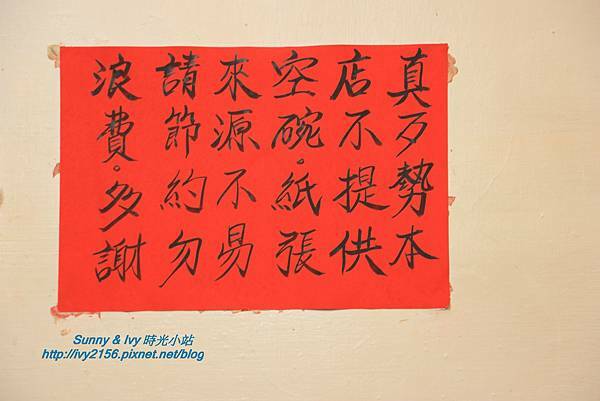 真歹勢本
店不提供
空碗。紙張
來源不易
請節約勿
浪費。多謝
Sunny & Ivy 時光小站
http://ivy2156.pixnet.net/blog